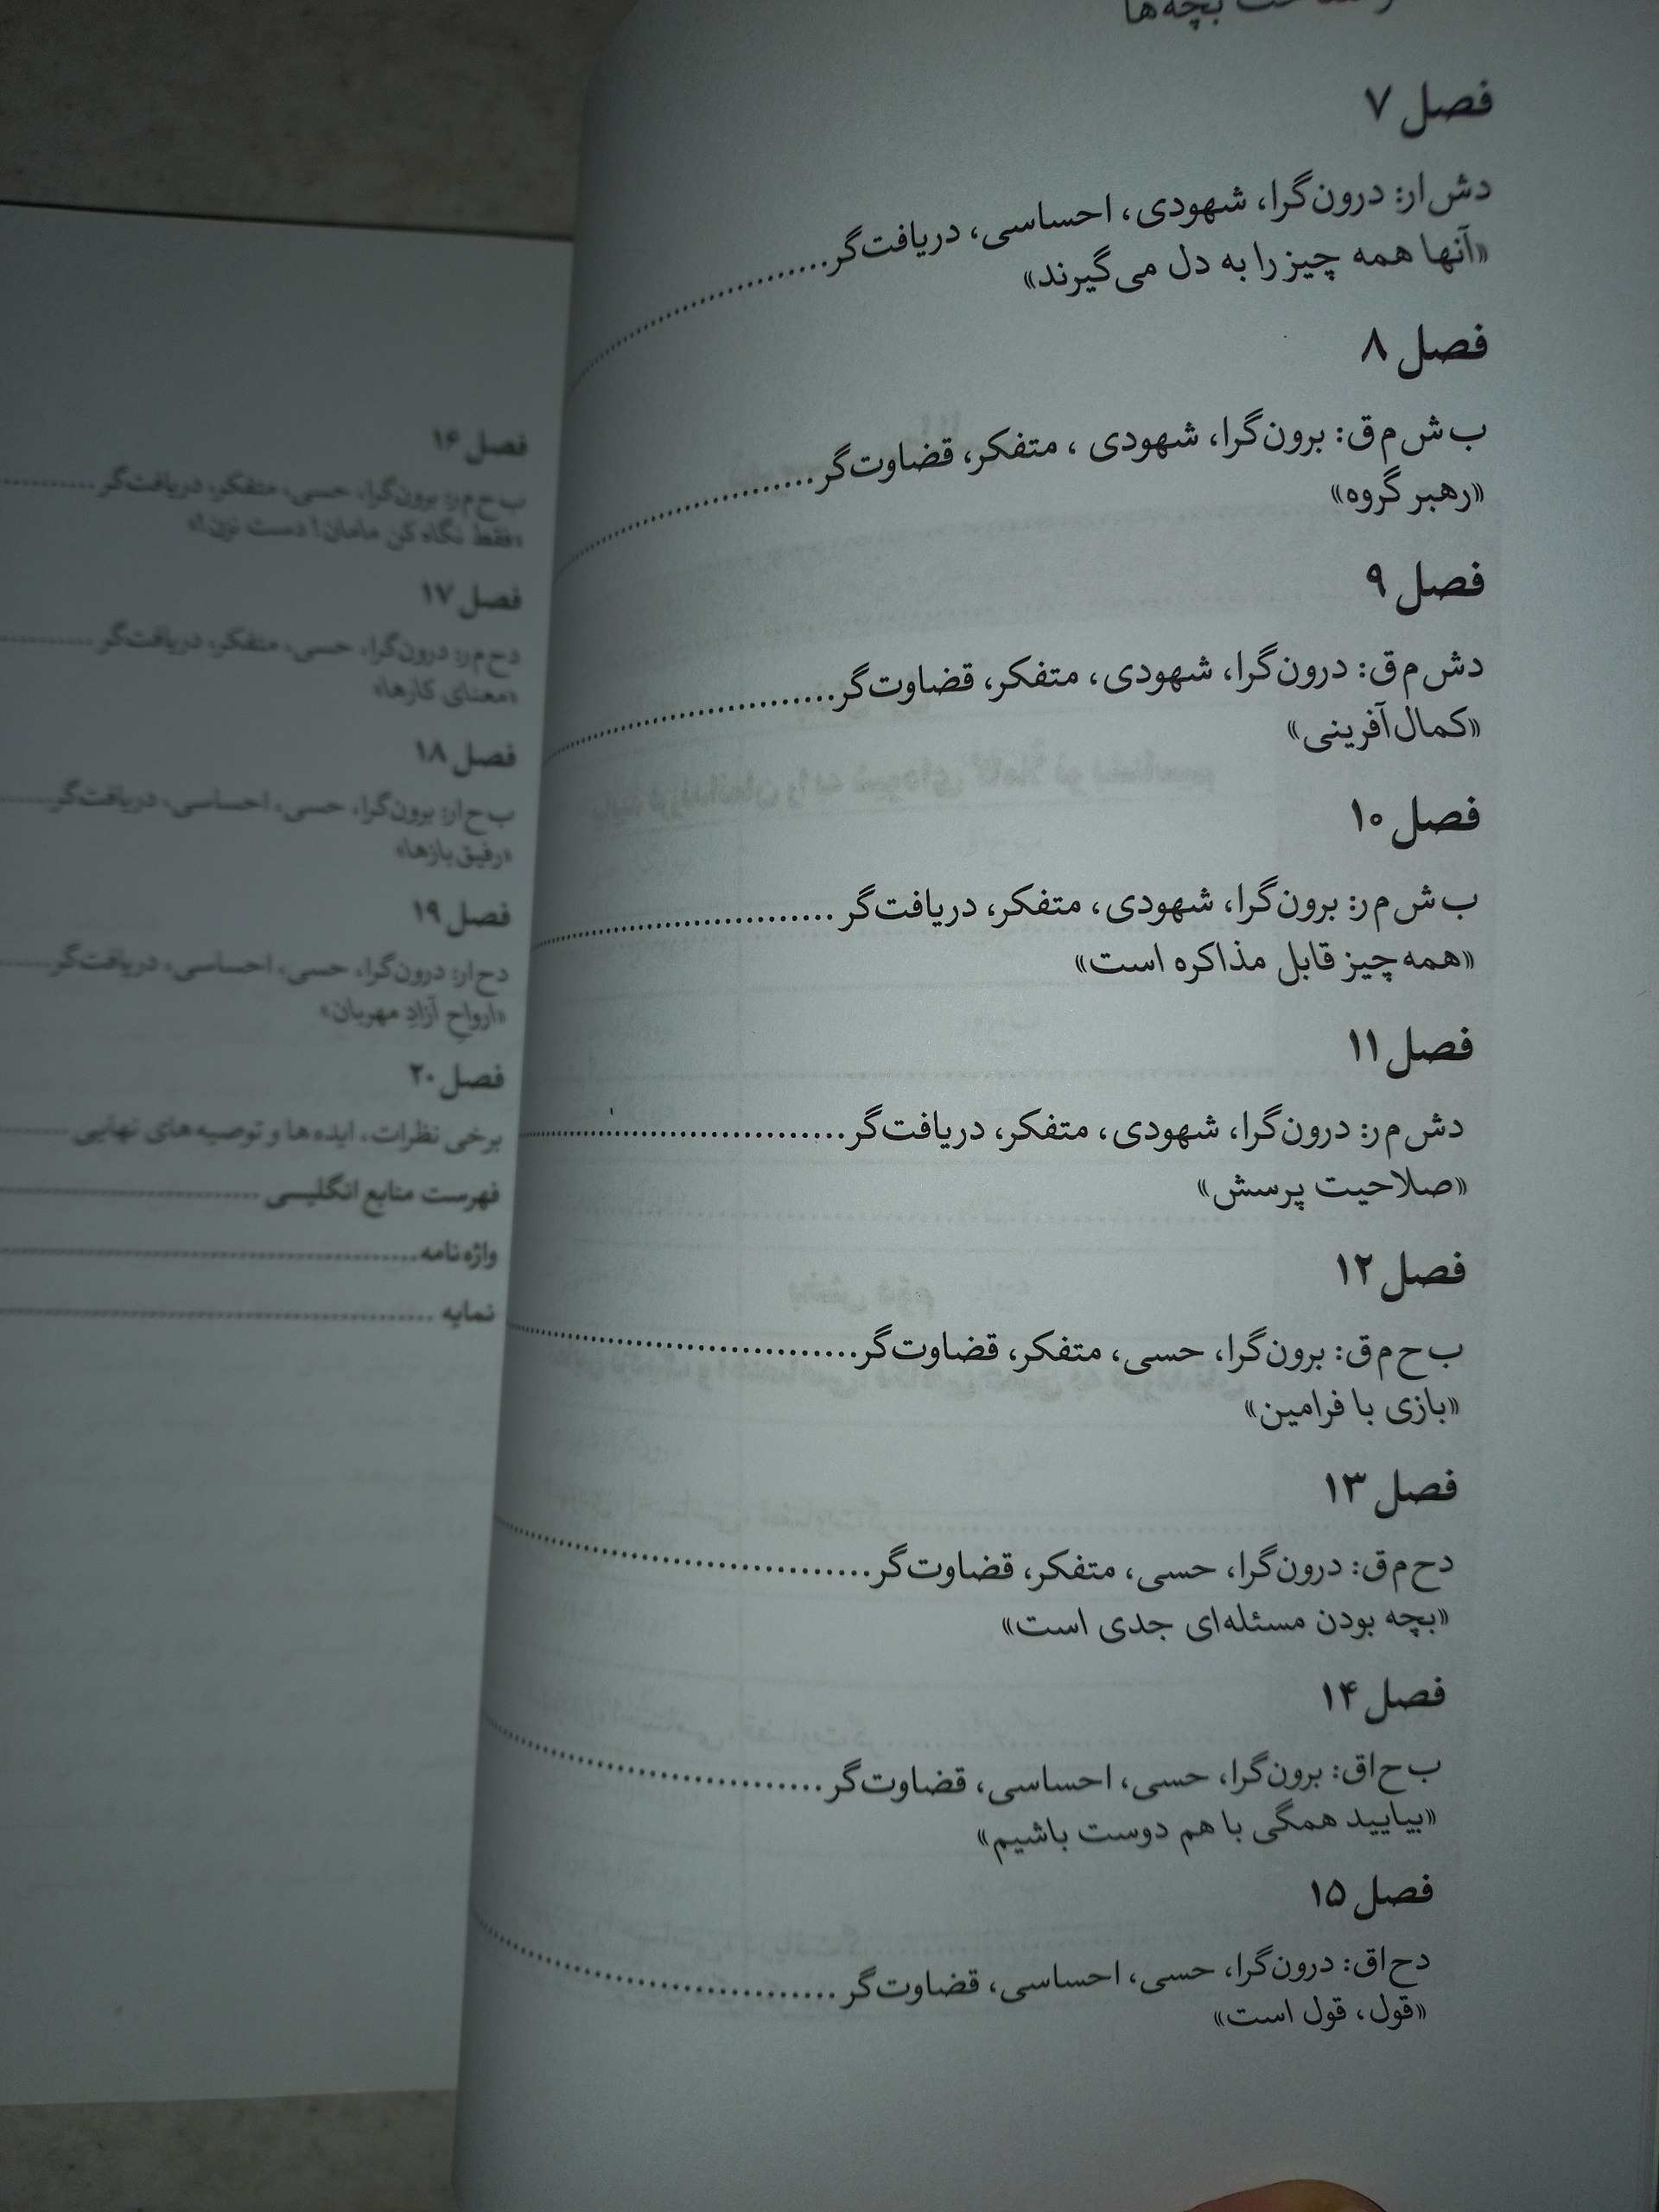 شناخت بچه‌ها
فصل ۷
دش‌ار: درون‌گرا، شهودی، احساسی، دریافت‌گر
«آنها همه چیز را به دل می‌گیرند»
فصل ۸
ب‌ش‌م‌ق: برون‌گرا، شهودی ، متفکر، قضاوت‌گر
«رهبر گروه»
فصل ۹
دش‌م‌ق: درون‌گرا، شهودی، متفکر، قضاوت‌گر
«کمال‌آفرینی»
فصل ۱۰
ب‌ش‌م‌ر: برون‌گرا، شهودی، متفکر، دریافت‌گر
«همه چیز قابل مذاکره است»
فصل ۱۱
دش‌م‌ر: درون‌گرا، شهودی، متفکر، دریافت‌گر
«صلاحیت پرسش»
فصل ۱۲
ب‌ح‌م‌ق: برون‌گرا، حسی، متفکر، قضاوت‌گر
«بازی با فرامین»
فصل ۱۳
دح‌م‌ق: درون‌گرا، حسی، متفکر، قضاوت‌گر
«بچه بودن مسئله‌ای جدی است»
فصل ۱۴
ب‌ح‌اق: برون‌گرا، حسی، احساسی، قضاوت‌گر
«بیایید همگی با هم دوست باشیم»
فصل ۱۵
دح‌اق: درون‌گرا، حسی، احساسی، قضاوت‌گر
«قول، قول است»
فصل ۱۶
ب‌ح‌م‌ر: برون‌گرا، حسی، متفکر، دریافت‌گر
«فقط نگاه کن مامان! دست نزن!»
فصل ۱۷
دح‌م‌ر: درون‌گرا، حسی، متفکر، دریافت‌گر
«معنای کارها»
فصل ۱۸
ب‌ح‌ار: برون‌گرا، حسی، احساسی، دریافت‌گر
«رفیق‌بازها»
فصل ۱۹
دح‌ار: درون‌گرا، حسی، احساسی، دریافت‌گر
«ارواحِ آزادِ مهربان»
فصل ۲۰
برخی نظرات، ایده‌ها و توصیه‌های نهایی
فهرست منابع انگلیسی
واژه‌نامه
نمایه